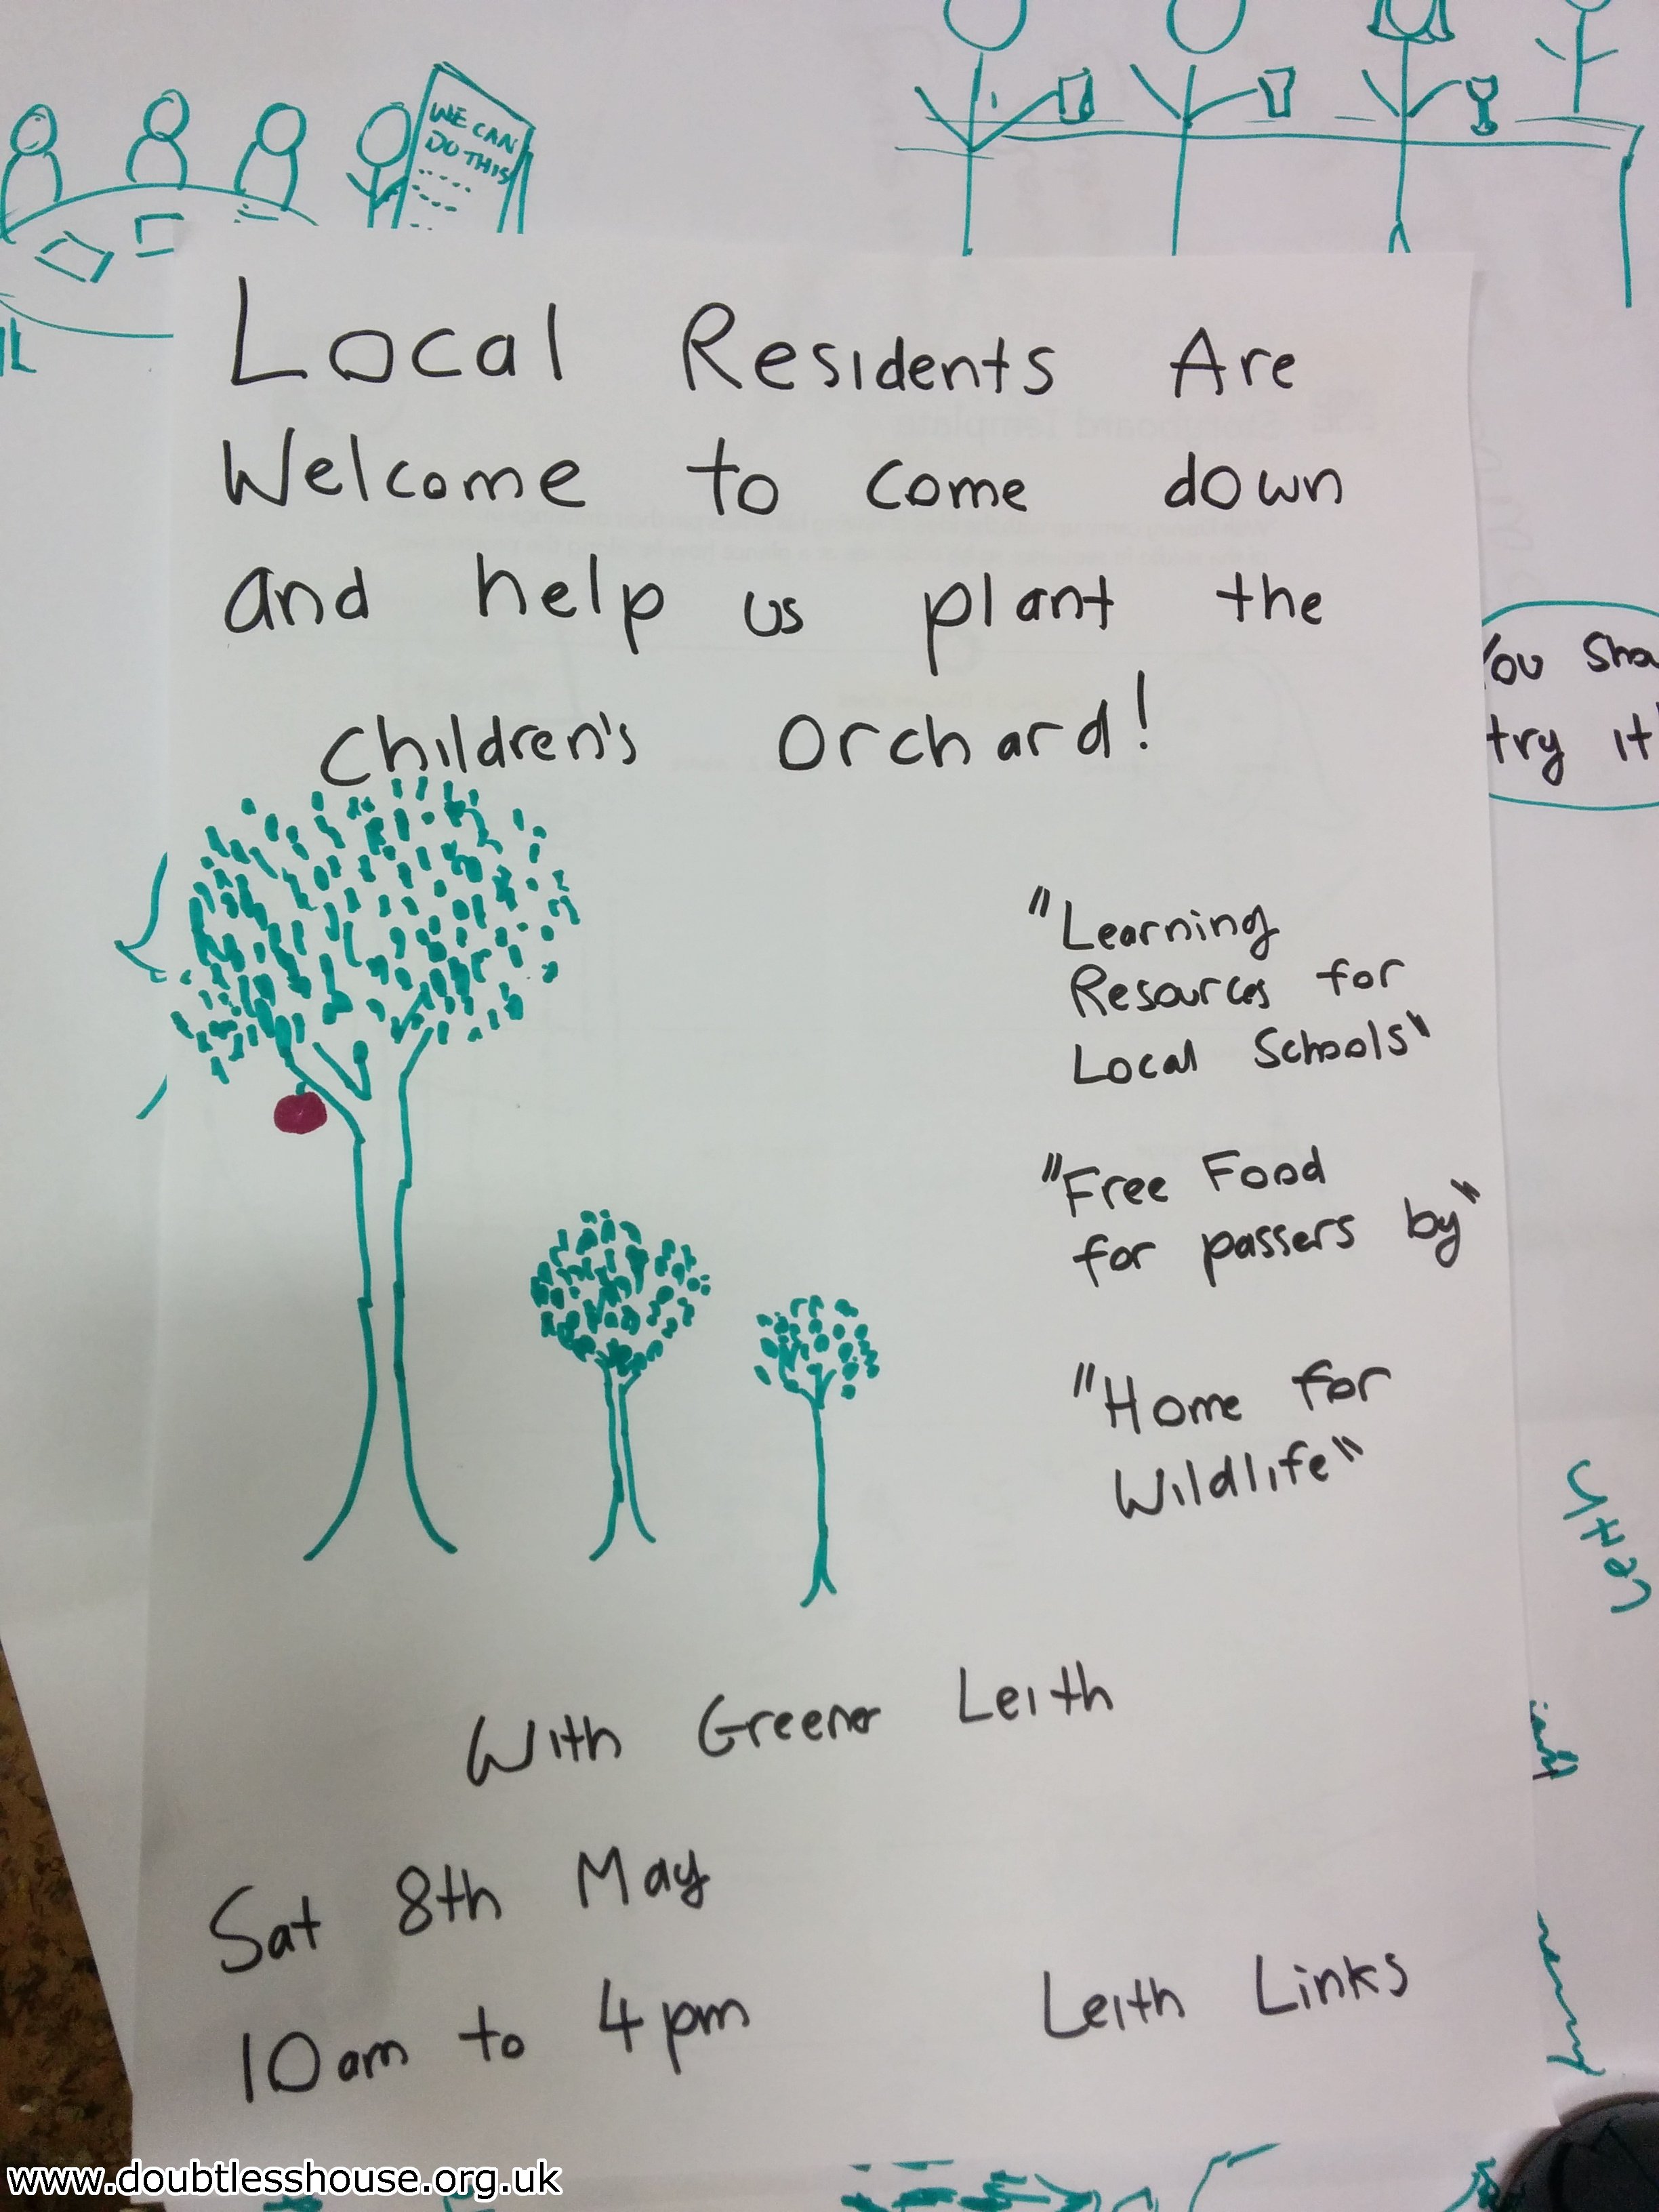 WE CAN
DO THIS
Local Residents Are
Welcome to come down
and help us plant the
Children's Orchard!
You
try it
"Learning
Resources for
Local Schools"
"Free Food
for passers by"
"Home for
Wildlife"
With Greener Leith
Sat 8th May
10am to 4pm
Leith Links
www.doubtlesshouse.org.uk